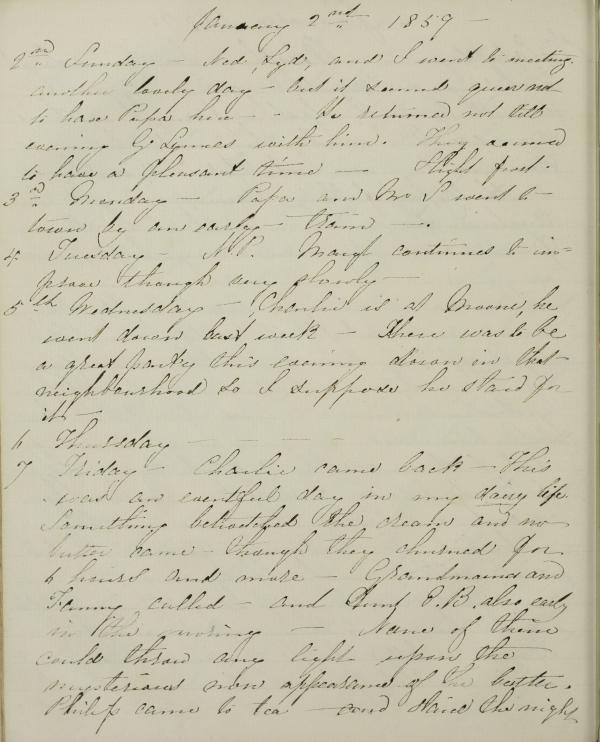 January 2nd 1859 -
2nd Sunday - Ned, Lyd, and I went to meeting.
another lovely day - but it seemed queer not
to have Papa here - - He returned not till
evening G Lynnes with him. They seemed
to have a pleasant time - Slight frost.
3rd Monday - Papa and Mr L went to
town by an early train -.
4 Tuesday - N.P. Margt continues to im=
prove though very slowly -
5th Wednesday - Charlie is at Moone, he
went down last week - There was to be
a great party this evening down in that
neighbourhood so I suppose he staid for
it -
6 Thursday - - -
7 Friday - Charlie came back - This
was an eventful day in my dairy life.
Something bewitched the cream and no
butter came - though they churned for
6 hours and more - Grandmama and
Fanny called - and Aunt E.B. also early
in the morning - None of them
could throw any light upon the
mysterious non appearance of the butter.
Philip came to tea - and staid the night